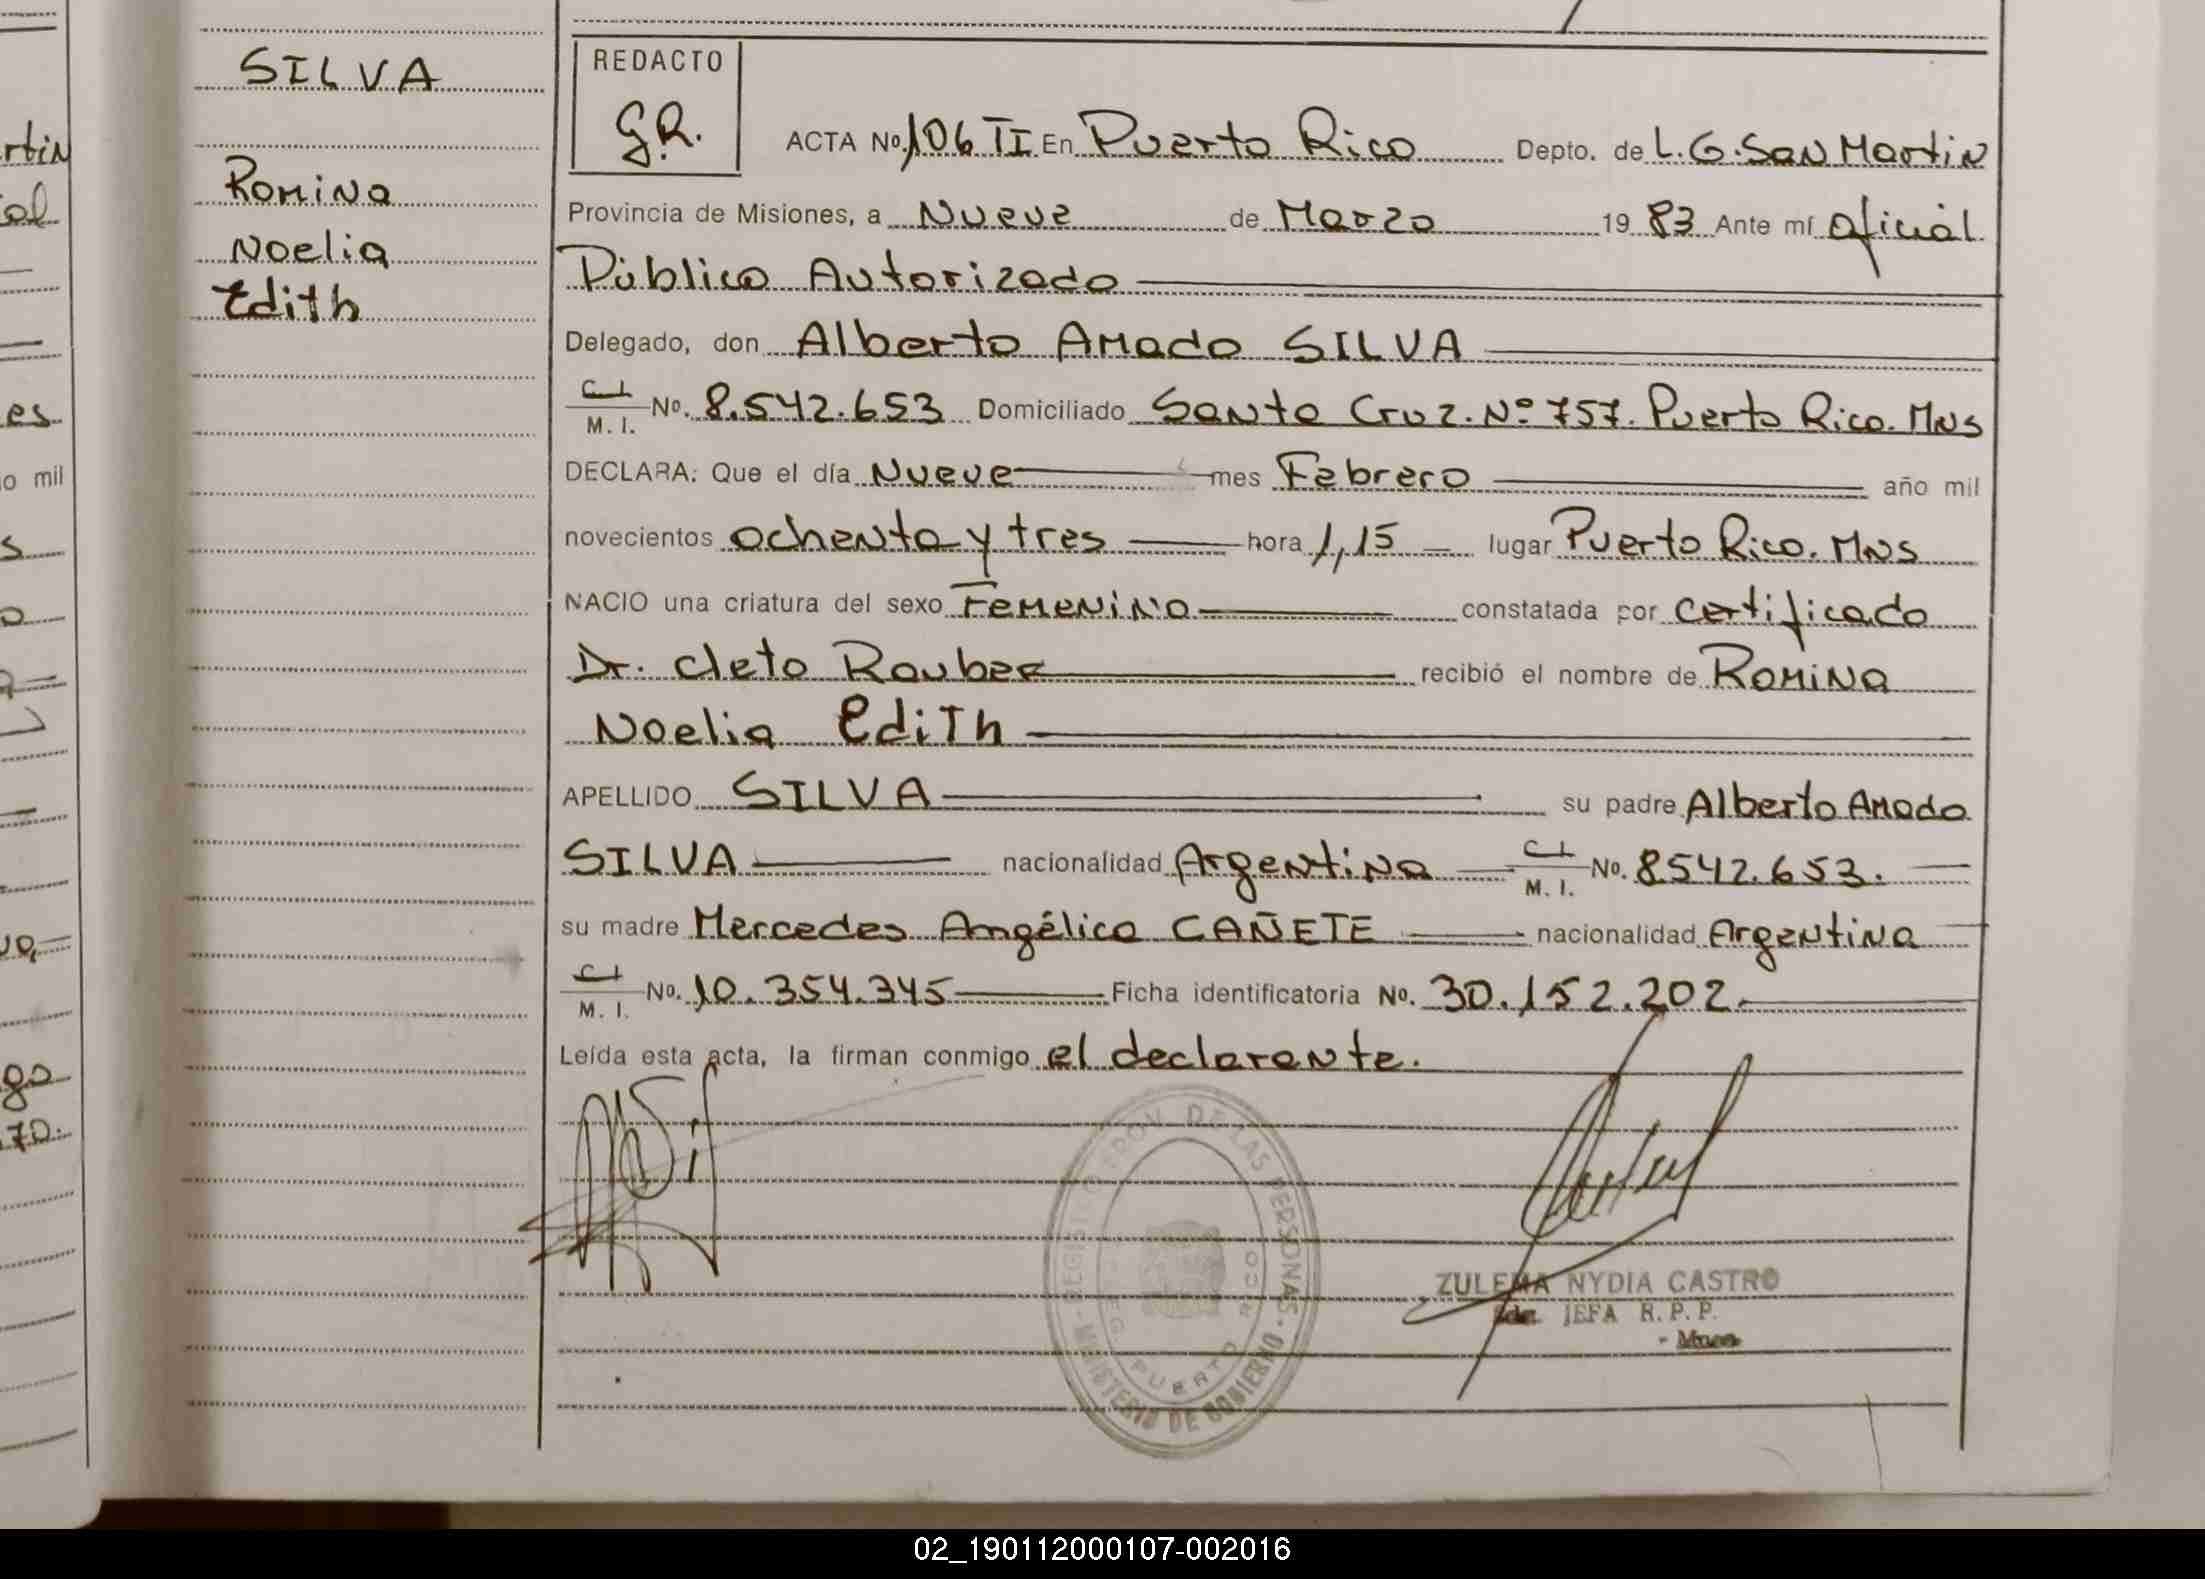 SILVA
Romina
Noelia
Edith
REDACTO
G.R.
ACTA No. 106 TI En Puerto Rico Depto. de L.G. San Martin
Provincia de Misiones, a Nueve de Marzo 19 83 Ante mí Oficial
Público Autorizado
Delegado, don Alberto Amado SILVA
M. I. No. 8.542.653 Domiciliado Santa Cruz. Nº 757. Puerto Rico. Mns
DECLARA: Que el día Nueve mes Febrero año mil
novecientos ochenta y tres hora 1,15 lugar Puerto Rico. Mns
NACIO una criatura del sexo Femenino constatada por certificado
Dr. Cleto Rauber recibió el nombre de Romina
Noelia Edith
APELLIDO SILVA su padre Alberto Amado
SILVA nacionalidad Argentina M. I. No. 8542.653.
su madre Mercedes Angélica CAÑETE nacionalidad Argentina
M. I. No. 10.354.345 Ficha identificatoria No. 30.152.202.
Leída esta acta, la firman conmigo el declarante.
DE LAS PERSONAS
MINISTERIO DE GOBIERNO
PUERTO RICO
ZULEMA NYDIA CASTRO
JEFA R.P.P.
rtin
al
es
o mil
s
go
70.
02_190112000107-002016